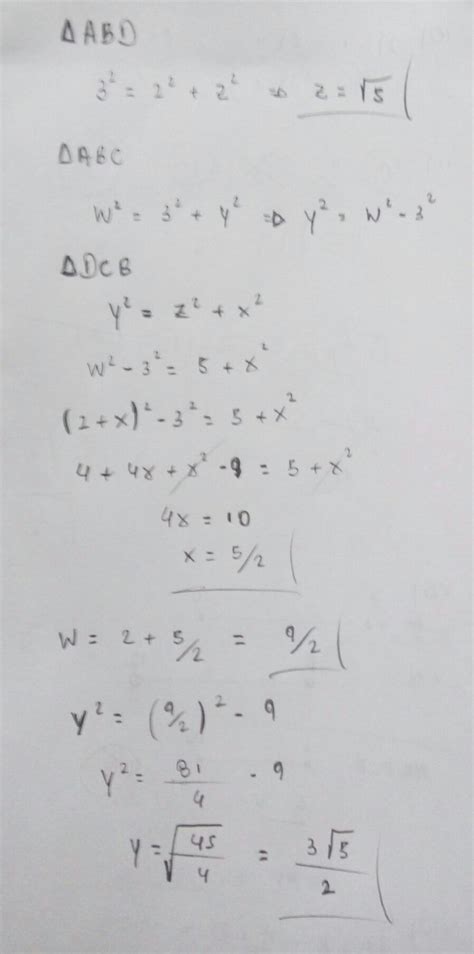 △ABD
3² = 2² + z² ⇒ z = √5
△ABC
W² = 3² + y² ⇒ y² = W² - 3²
△DCB
y² = z² + x²
W² - 3² = 5 + x²
(2+x)² - 3² = 5 + x²
4 + 4x + x² - 9 = 5 + x²
4x = 10
x = 5/2
W = 2 + 5/2 = 9/2
y² = (9/2)² - 9
y² = 81/4 - 9
y = √45/4 = 3√5/2